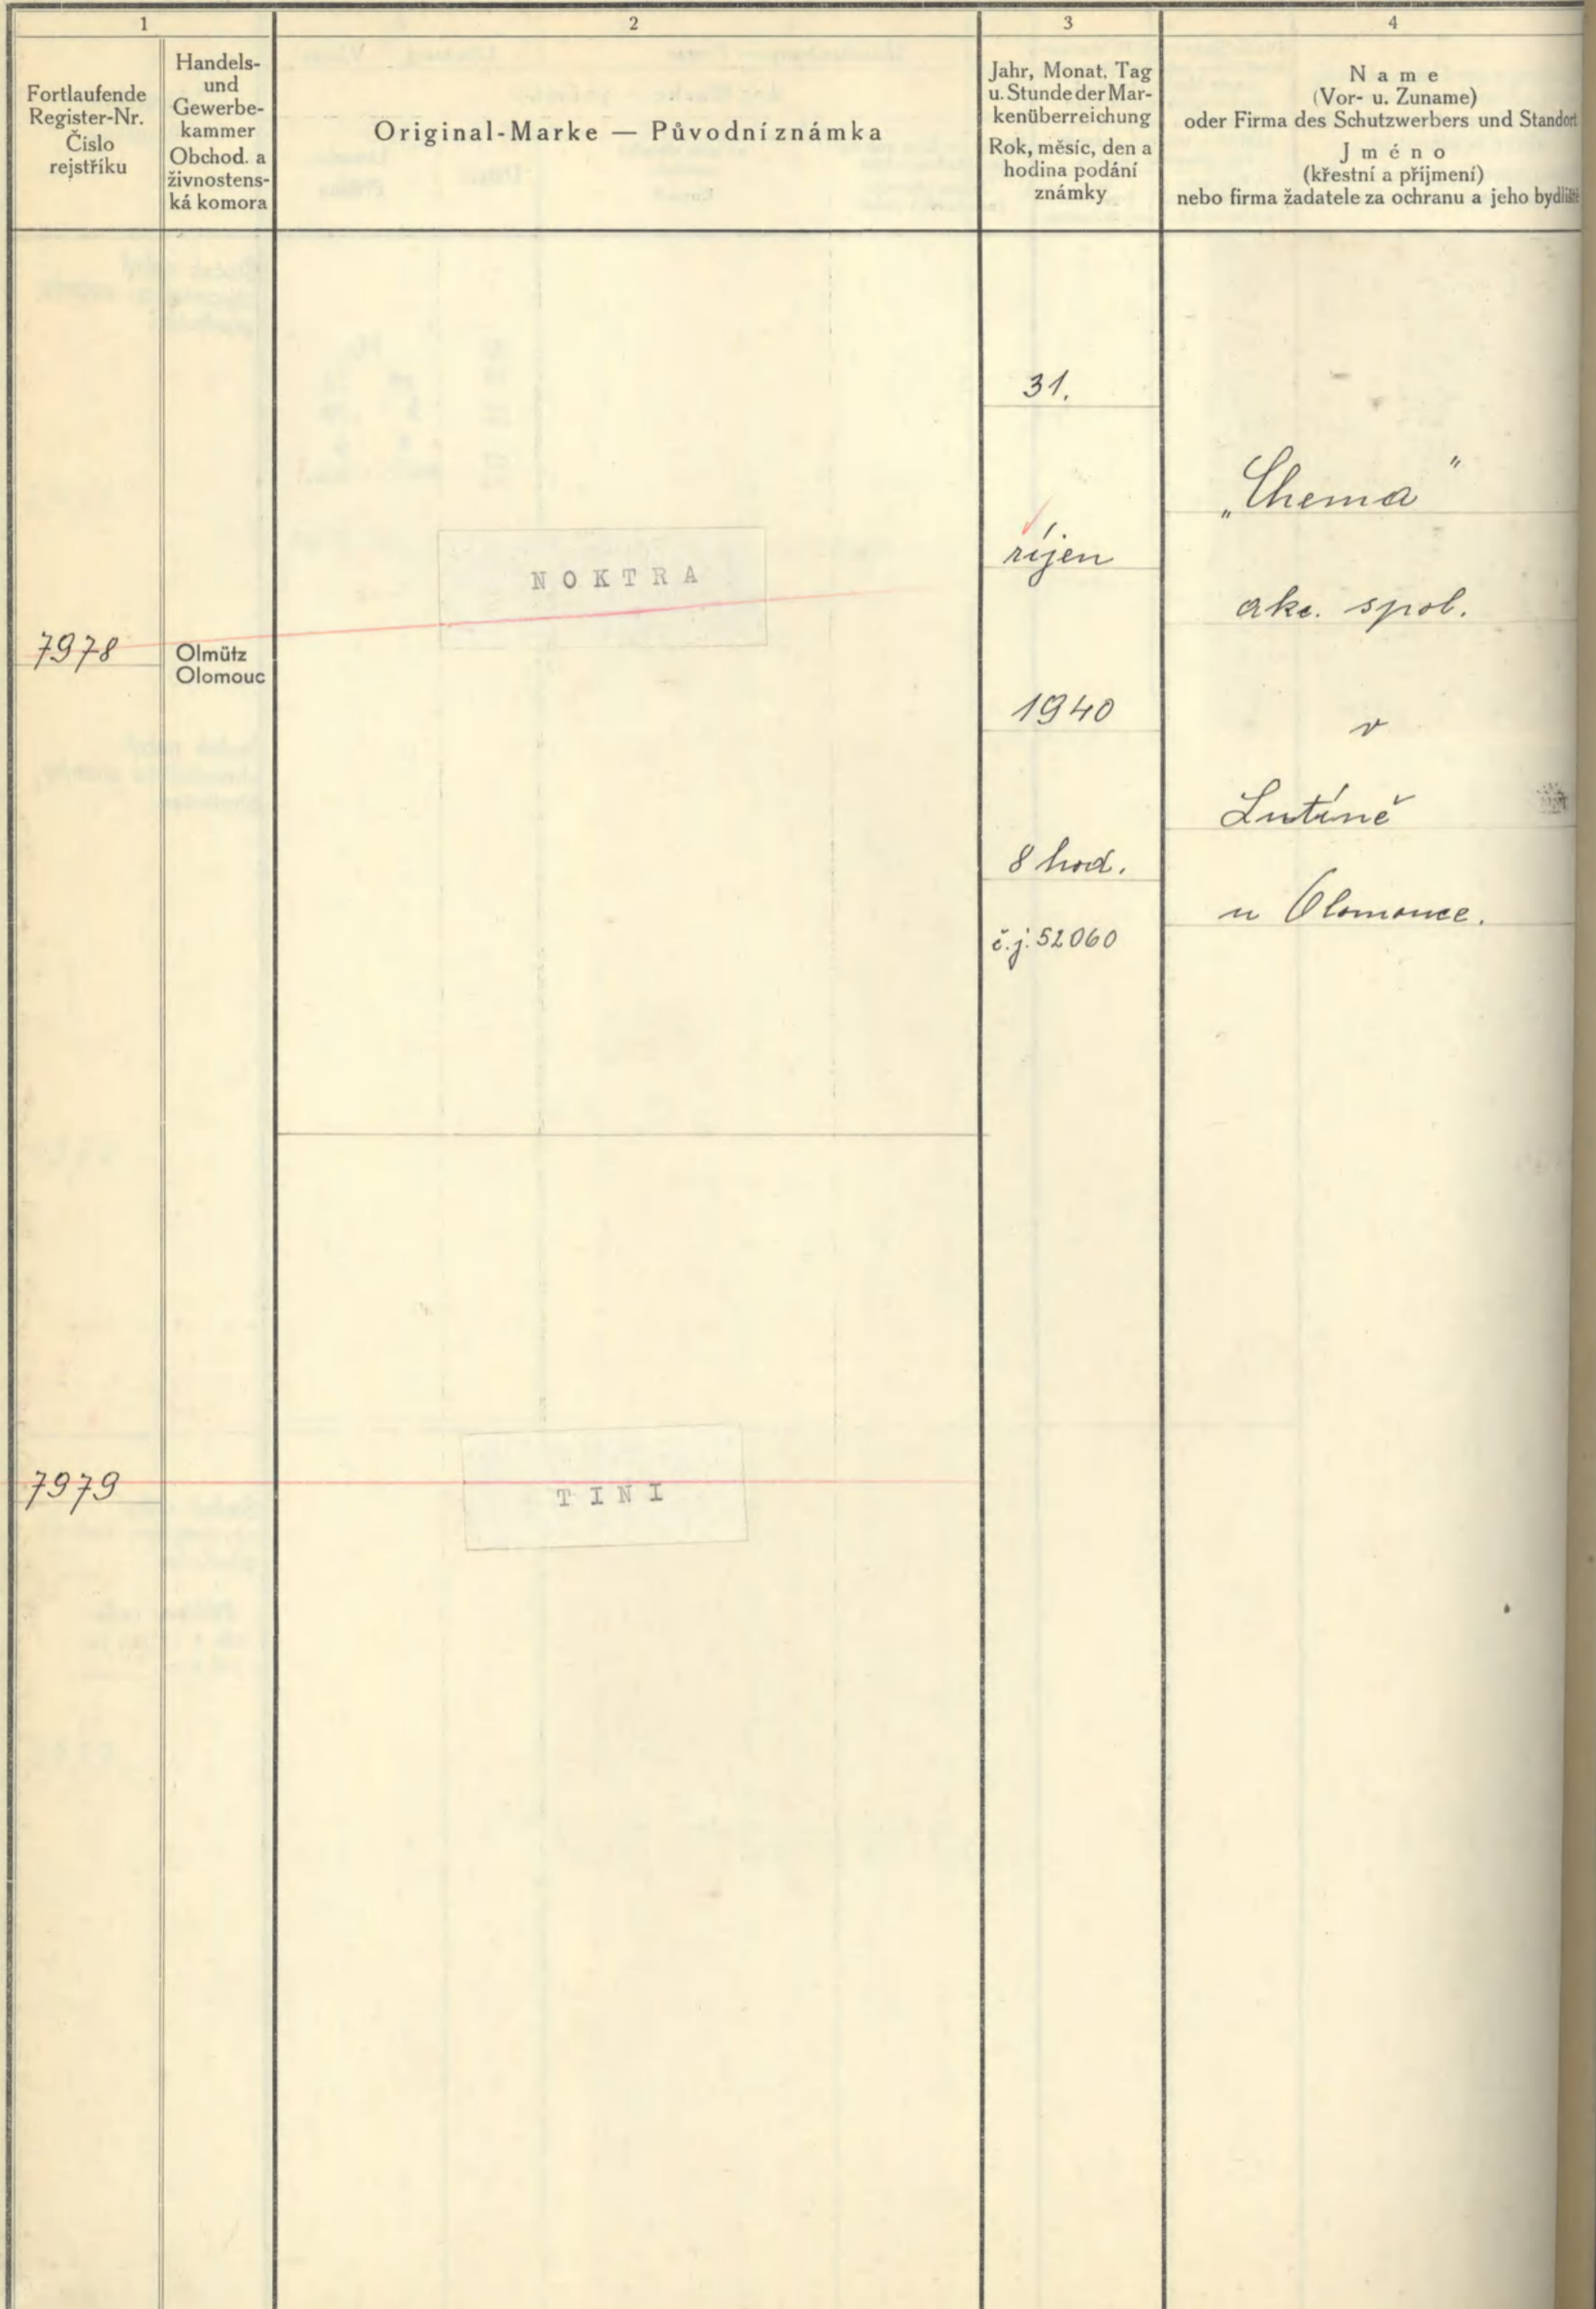 1
Fortlaufende
Register-Nr.
Číslo
rejstříku
Handels-
und
Gewerbe-
kammer
Obchod. a
živnostens-
ká komora
2
Original-Marke — Původní známka
3
Jahr, Monat, Tag
u. Stunde der Mar-
kenüberreichung
Rok, měsíc, den a
hodina podání
známky
4
Name
(Vor- u. Zuname)
oder Firma des Schutzwerbers und Standort
Jméno
(křestní a příjmení)
nebo firma žadatele za ochranu a jeho bydliště
7978
Olmütz
Olomouc
NOKTRA
31.
říjen
1940
8 hod.
č.j. 52060
„Chema"
akc. spol.
v
Lutíně
u Olomouce.
7979
TINI